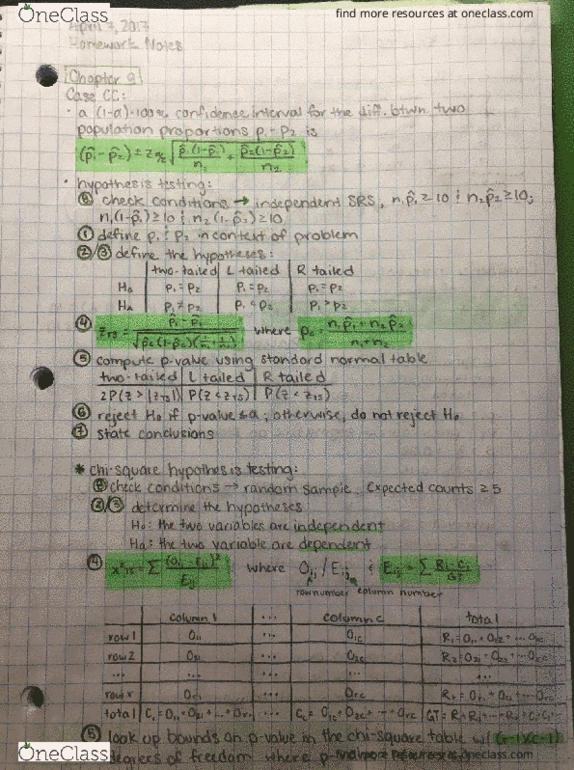 OneClass
find more resources at oneclass.com
April 7, 2017
Homework Notes
Chapter 9
Case CC:
· a (1-α)·100% confidence interval for the diff. btwn two
population proportions p₁-p₂ is
(p̂₁-p̂₂) ± z α/2 √ p̂₁(1-p̂₁)/n₁ + p̂₂(1-p̂₂)/n₂
· hypothesis testing:
⓪ check conditions → independent SRS, n₁p̂₁ ≥ 10 & n₂p̂₂ ≥ 10;
n₁(1-p̂₁) ≥ 10 & n₂(1-p̂₂) ≥ 10
① define p₁ & p₂ in context of problem
②/③ define the hypotheses:
two-tailed | L tailed | R tailed
H₀ p₁ = p₂ p₁ = p₂ p₁ = p₂
HA p₁ ≠ p₂ p₁ < p₂ p₁ > p₂
④ where
⑤ compute p-value using standard normal table
two-tailed | L tailed | R tailed
2P(Z > |zTS|) P(Z < zTS) P(Z < zTS)
⑥ reject H₀ if p-value ≤ α; otherwise, do not reject H₀
⑦ state conclusions
* chi-square hypothesis testing:
check conditions → random sample, expected counts ≥ 5
②/③ determine the hypotheses
H₀: the two variables are independent
Ha: the two variable are dependent
④ x²TS = Σ (Oij - Eij)²/Eij where Oij / Eij & Eij = Σ Ri·Cj/GT
row number column number
column 1 ... column c total
row 1 O11 ... O1c R₁ = O11 + O12 + ... O1c
row 2 O21 ... O2c R₂ = O21 + O22 + ... O2c
... ... ... ...
row r Or1 ... Orc
total
look up bounds on p-value in the chi-square table w/ (r-1)(c-1)
OneClass
degrees of freedom where
find more resources at oneclass.com